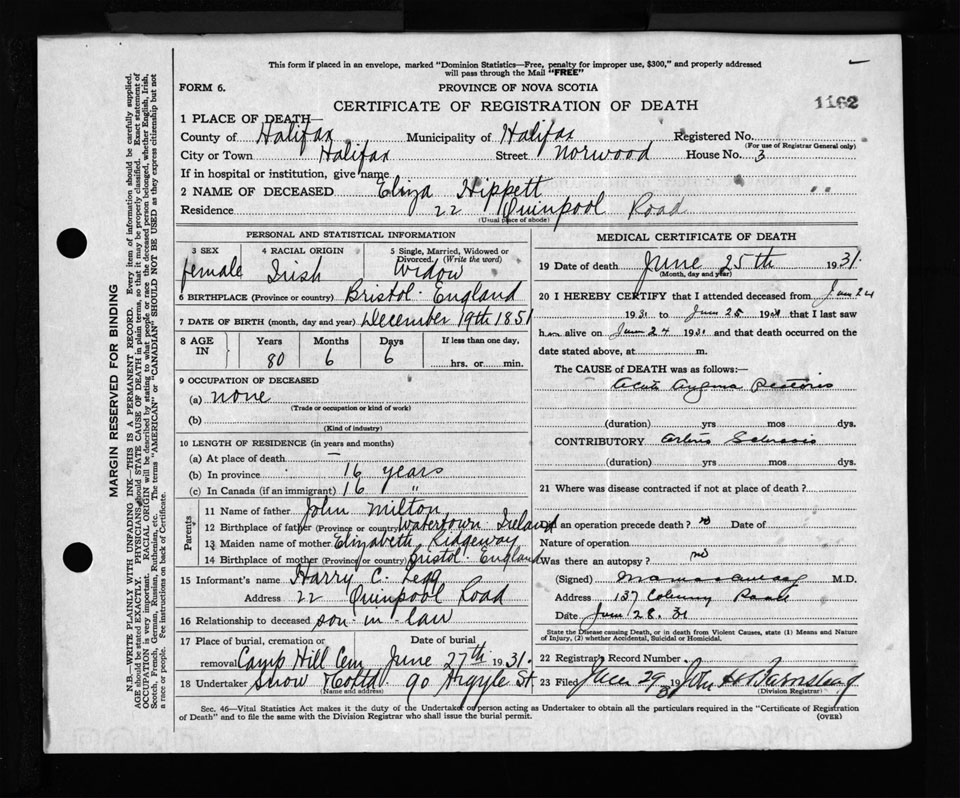 This form if placed in an envelope, marked "Dominion Statistics—Free, penalty for improper use, $300," and properly addressed
will pass through the Mail "FREE"
FORM 6.
PROVINCE OF NOVA SCOTIA
CERTIFICATE OF REGISTRATION OF DEATH
1162
1 PLACE OF DEATH—
County of Halifax Municipality of Halifax Registered No.
(For use of Registrar General only)
City or Town Halifax Street Norwood House No. 3
If in hospital or institution, give name
2 NAME OF DECEASED Eliza Hippett
Residence 22 Quinpool Road
(Usual place of abode)
PERSONAL AND STATISTICAL INFORMATION
3 SEX 4 RACIAL ORIGIN 5 Single, Married, Widowed or
Divorced. (Write the word)
female Irish Widow
6 BIRTHPLACE (Province or country) Bristol England
7 DATE OF BIRTH (month, day and year) December 19th 1851
8 AGE IN Years Months Days If less than one day,
80 6 6 hrs. or min.
9 OCCUPATION OF DECEASED
(a) none
(Trade or occupation or kind of work)
(b)
(Kind of industry)
10 LENGTH OF RESIDENCE (in years and months)
(a) At place of death —
(b) In province 16 years
(c) In Canada (if an immigrant) 16 "
Parents
11 Name of father John Milton
12 Birthplace of father (Province or country) Watertown Ireland
13 Maiden name of mother Elizabeth Ridgeway
14 Birthplace of mother (Province or country) Bristol England
15 Informant's name Harry C. Legg
Address 22 Quinpool Road
16 Relationship to deceased son in law
17 Place of burial, cremation or Date of burial
removal Camp Hill Cem June 27th 1931.
18 Undertaker Snow 90 Argyle St.
(Name and address)
MEDICAL CERTIFICATE OF DEATH
19 Date of death June 25th 1931.
(Month, day and year)
20 I HEREBY CERTIFY that I attended deceased from June 24
1931 to June 25 1931 that I last saw
h alive on June 24 1931 and that death occurred on the
date stated above, at m.
The CAUSE of DEATH was as follows:—
Acute Angina Pectoris
(duration) yrs mos dys.
CONTRIBUTORY Sclerosis
(duration) yrs mos dys.
21 Where was disease contracted if not at place of death?
Did an operation precede death? no Date of
Nature of operation
Was there an autopsy? no
(Signed) M.D.
Address 137
Date June 28. 31
State the Disease causing Death, or in death from Violent Causes, state (1) Means and Nature
of Injury, (2) whether Accidental, Suicidal or Homicidal.
22 Registrars Record Number
23 Filed June 29 1931 John
(Division Registrar)
Sec. 46—Vital Statistics Act makes it the duty of the Undertaker or person acting as Undertaker to obtain all the particulars required in the "Certificate of Registration
of Death" and to file the same with the Division Registrar who shall issue the burial permit.
(OVER)
MARGIN RESERVED FOR BINDING
N.B.—WRITE PLAINLY WITH UNFADING INK—THIS IS A PERMANENT RECORD. Every item of information should be carefully supplied.
AGE should be stated EXACTLY. PHYSICIANS should STATE CAUSE OF DEATH in plain terms, so that it may be properly classified. Exact statement of
OCCUPATION is very important. RACIAL ORIGIN will be described by stating to what people or race the deceased person belonged, whether English, Irish,
Scotch, French, German, Russian, Ruthenian, etc. The terms "AMERICAN" or "CANADIAN" SHOULD NOT BE USED as they express citizenship but not
a race or people. Fee instructions on back of Certificate.